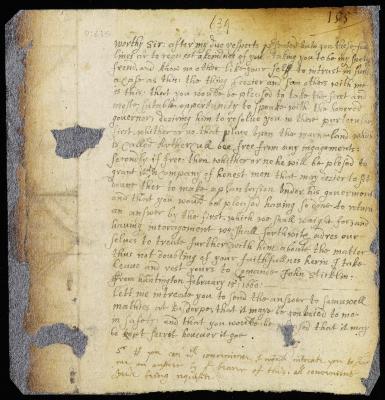 639
155
worthy Sir: after my due respects presented unto you these few
lines are to request a kindnes of you taking you to be my
frend and know no other like your self to intrust in such
a case as this: the thing I desier and som others with me
is this: that you would be pleased to take the first and
most sutable oppertunity to speake with the honered
governor; desiring him to resolve you in these perticulers
first whether or no that place upon the maine land which
is called Arther cull bee free from any ingagements:
secondly if free: then whether or no he will be plesed to
grant it to a company of honest men that may desier to sit
downe ther to make a plantation under his goverment
and that you would be pleased having so done to return
an answer by the first which we shall waight for and
having incoragement we shall forthwith adres our
selves to treate further with him about the matter
thus not doubting of your faithfullnes herin I take
leave and rest yours to comande John Sticklin:
from huntington february 15: 1660:
Lett me intreate you to send the answer to samuwell
mathies at that it maye be convaied to me
in safety and that you would be plesed that it may
be kept secret however it goe
Sr if you can conveniense I would intreate you to
me an answer by the bearer of this: all convenient
being